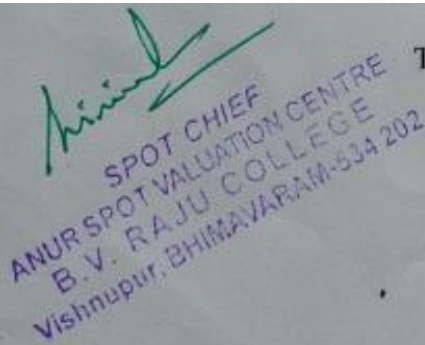 T
SPOT CHIEF
ANUR SPOT VALUATION CENTRE
B.V. RAJU COLLEGE
Vishnupur, BHIMAVARAM-534 202